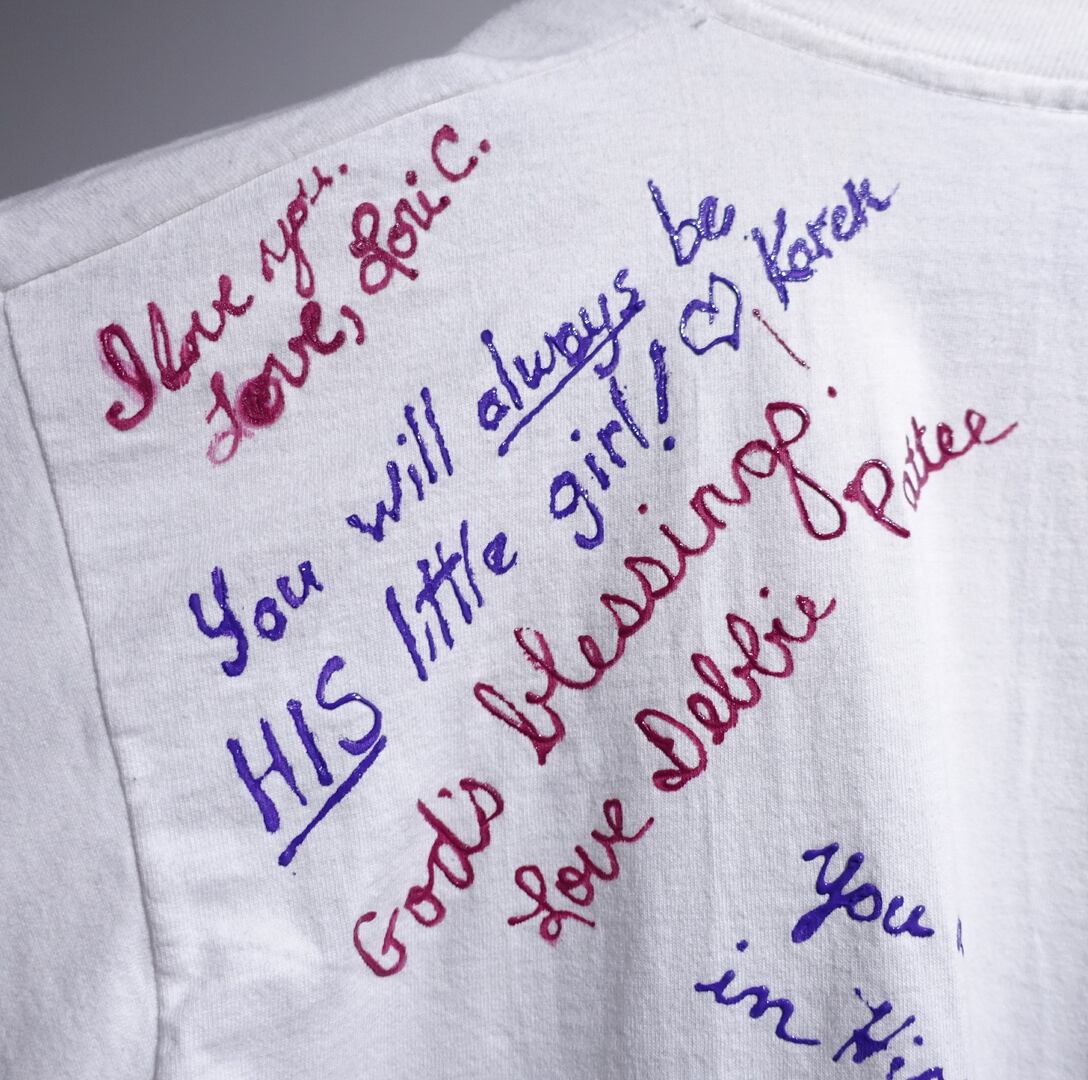 I love you.
Love, Lori C.
You will always be
HIS little girl! ♡ Karen
God's blessing!
Love Debbie
Pattee
You
in